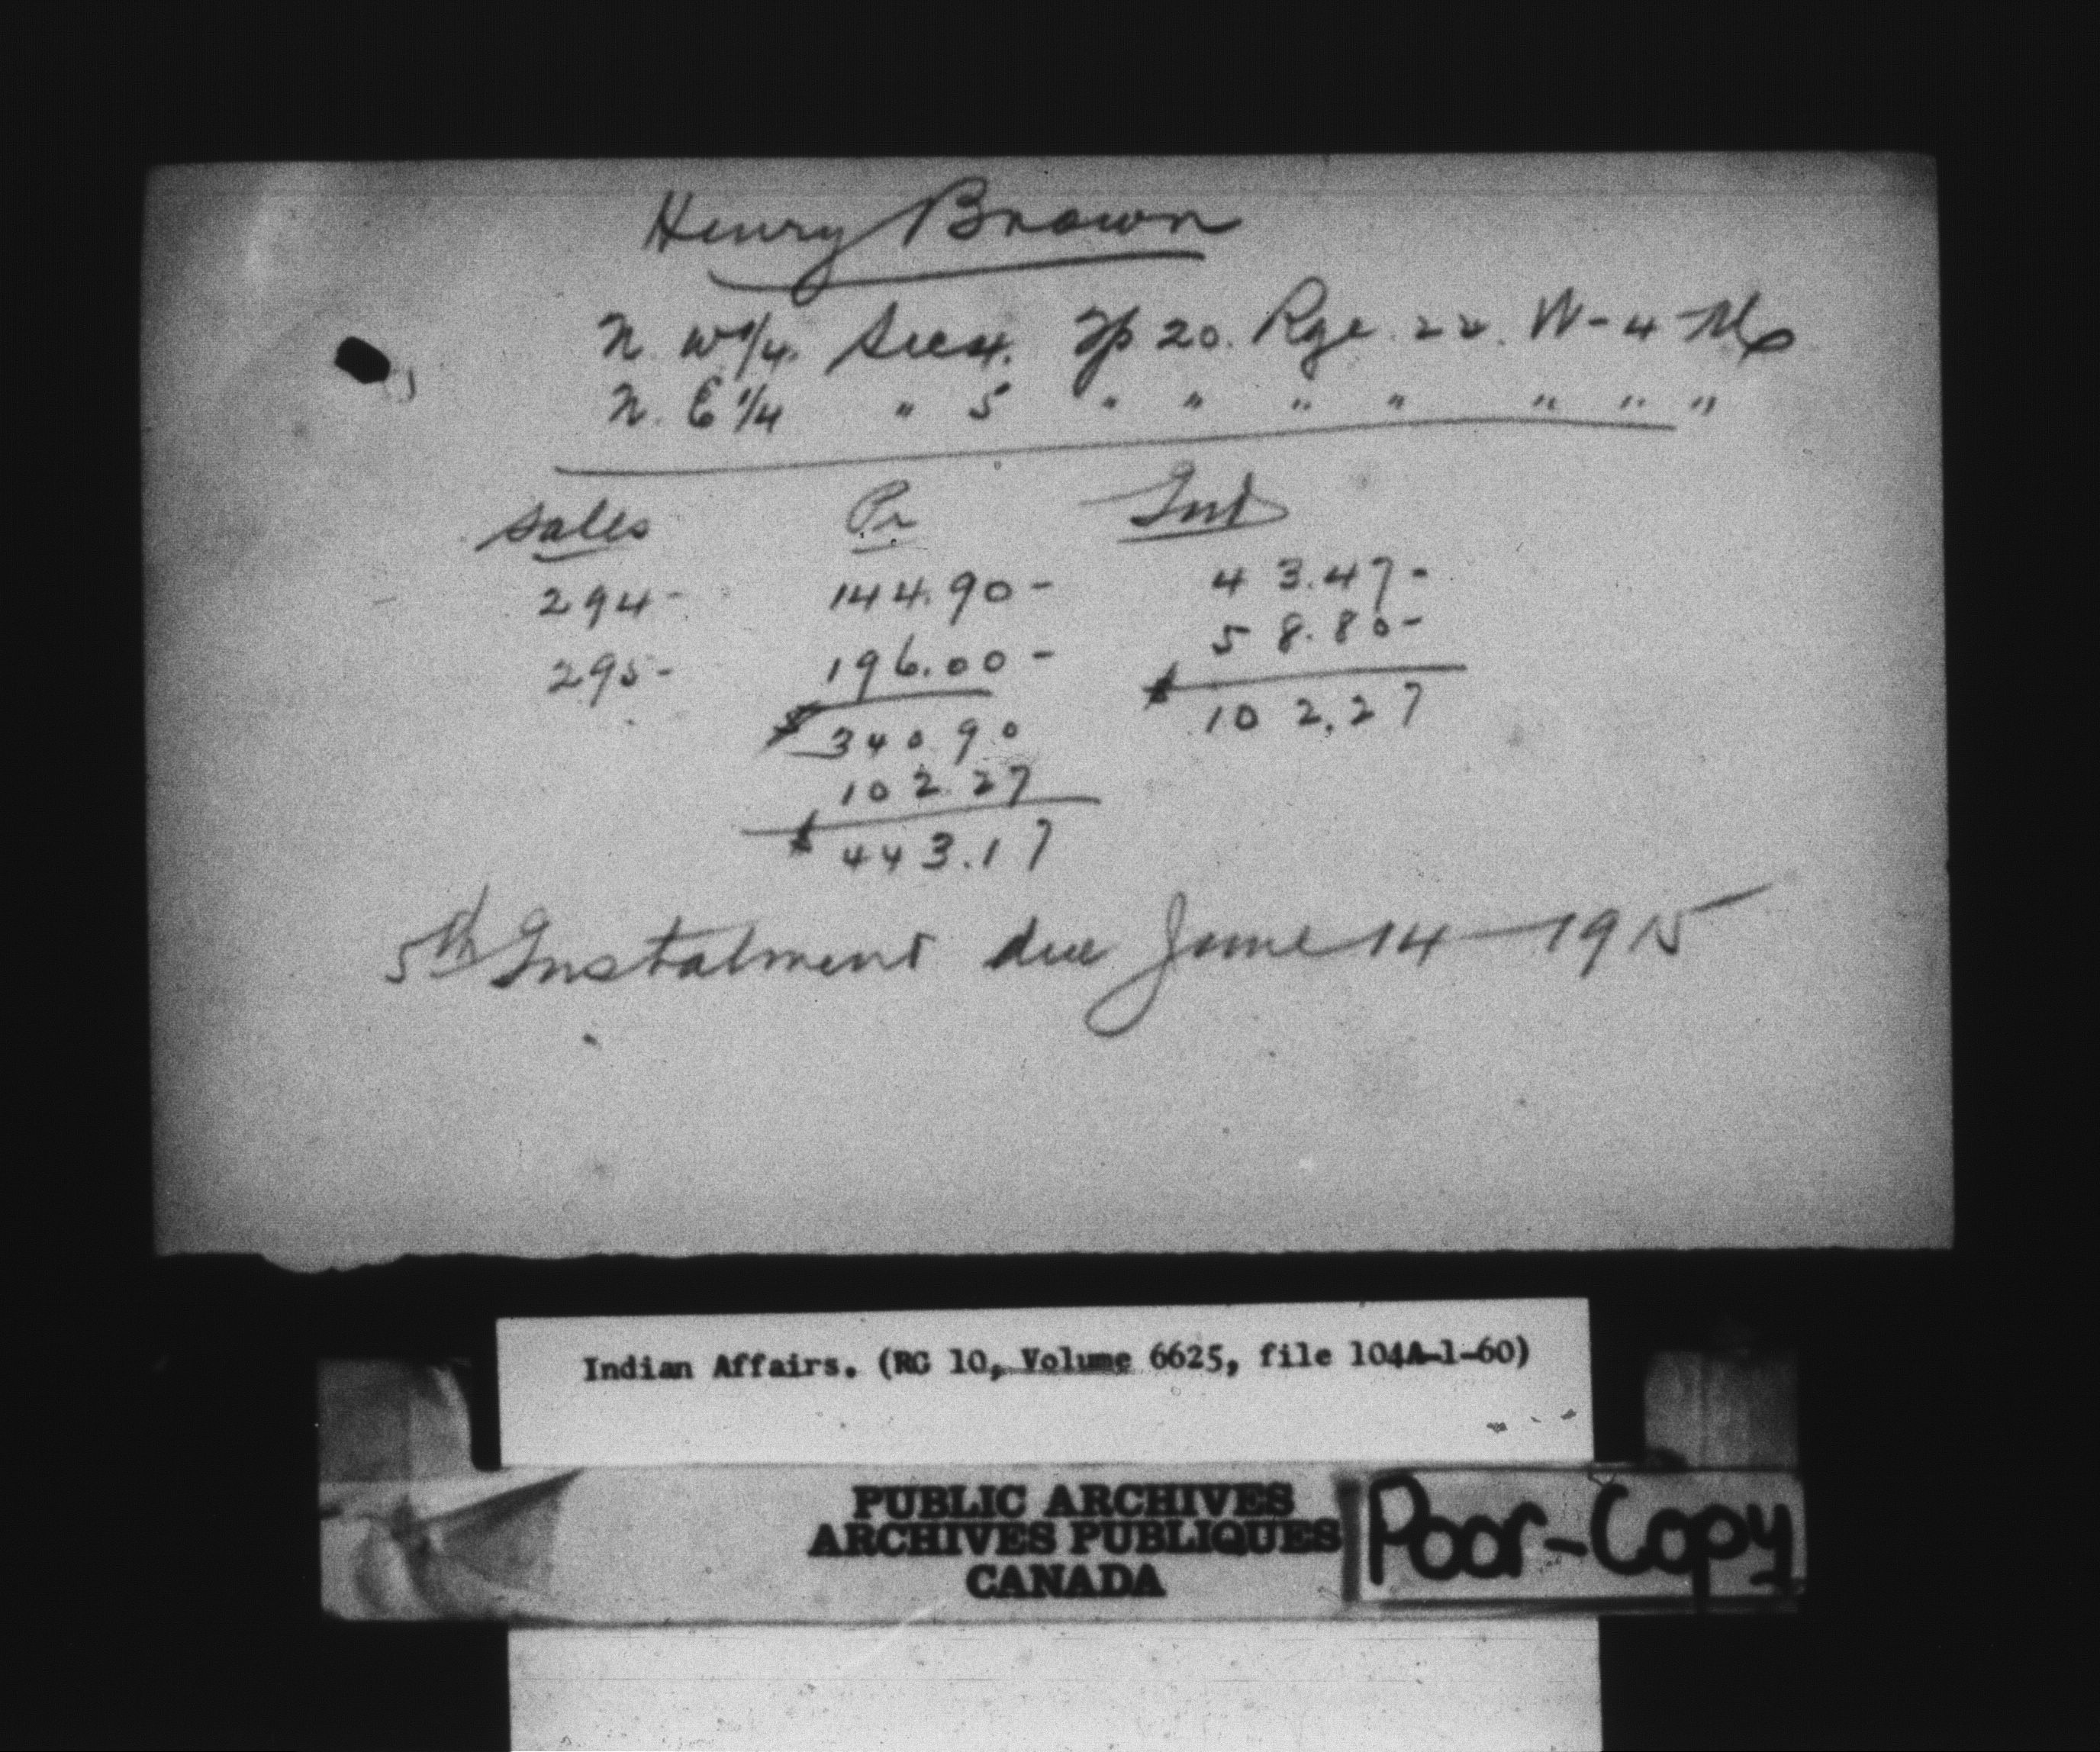 Henry Brown
N. W 1/4. Sec 4. Tp 20. Rge. 22. W-4-M
N. E 1/4 " 5 " " " " " " "
Sales Pr Int
294- 144.90- 43.47-
295- 196.00- 58.80-
$ 340.90 $ 102.27
102.27
$ 443.17
5th Instalment due June 14-1915
Indian Affairs. (RG 10, Volume 6625, file 104A-1-60)
PUBLIC ARCHIVES
ARCHIVES PUBLIQUES
CANADA
Poor-Copy